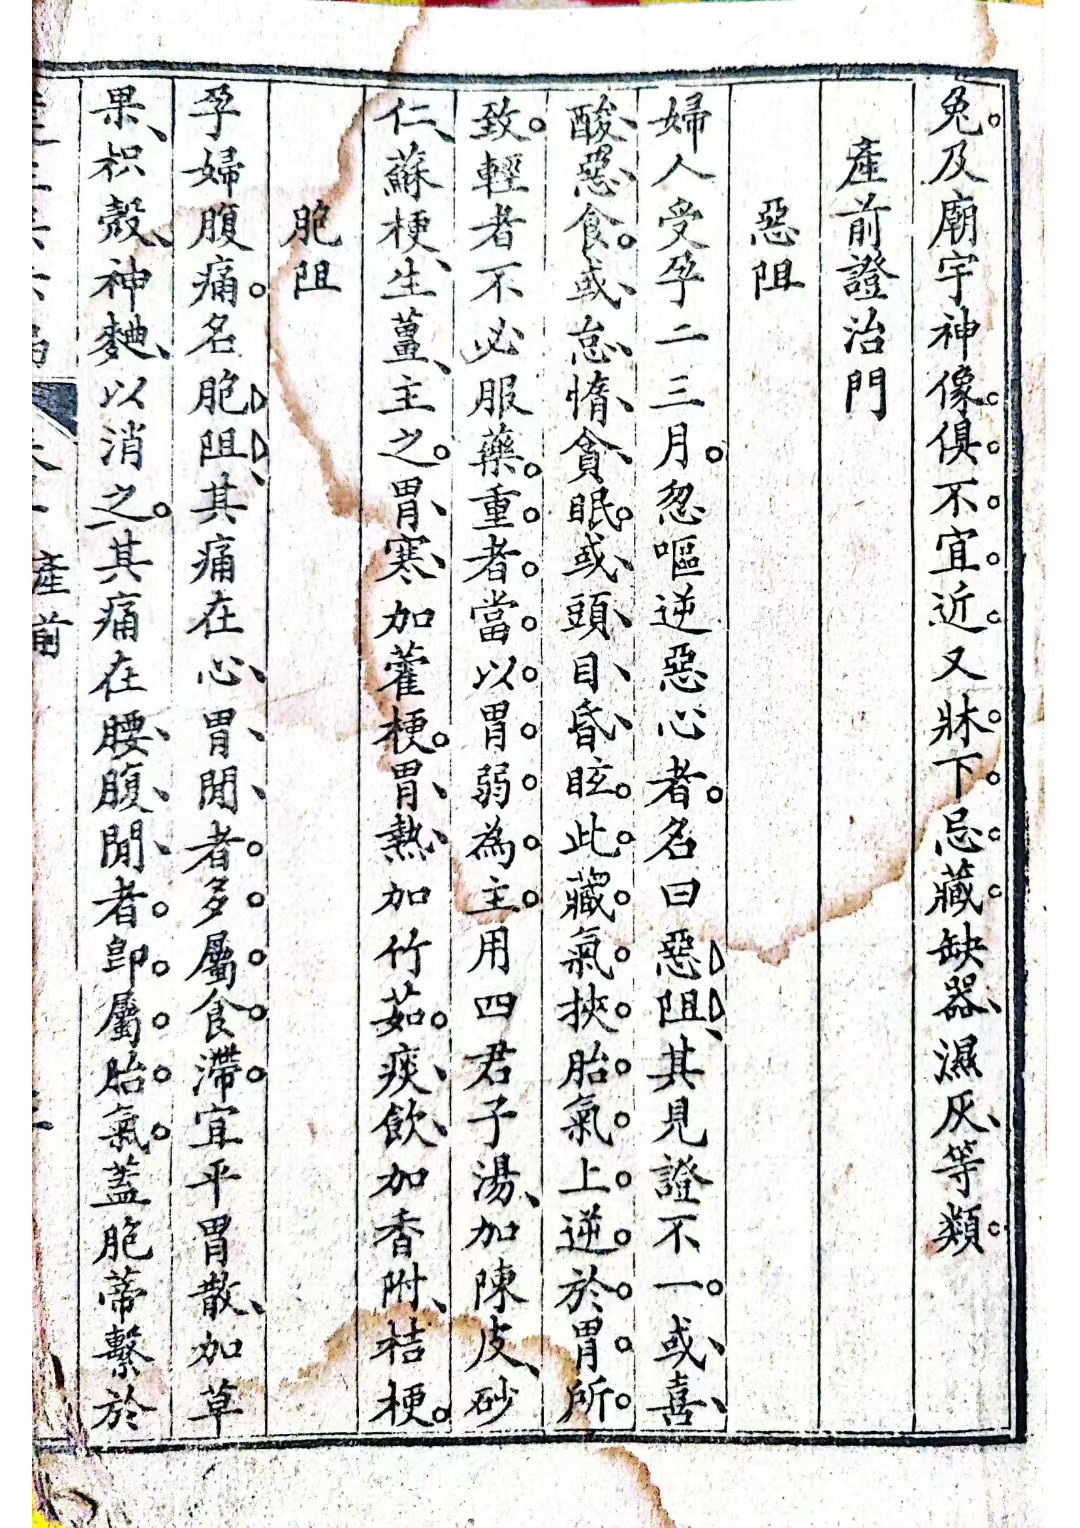 兔及廟宇神像俱不宜近又牀下忌藏缺器濕灰等類
產前證治門
惡阻
婦人受孕二三月忽嘔逆惡心者名曰惡阻其見證不一或喜
酸惡食或怠惰貪眠或頭目昏眩此藏氣挾胎氣上逆於胃所
致輕者不必服藥重者當以胃弱為主用四君子湯加陳皮砂
仁蘇梗生薑主之胃寒加藿梗胃熱加竹茹痰飲加香附桔梗
胞阻
孕婦腹痛名胞阻其痛在心胃間者多屬食滯宜平胃散加草
果枳殼神麯以消之其痛在腰腹間者卽屬胎氣蓋胞蒂繫於
產前